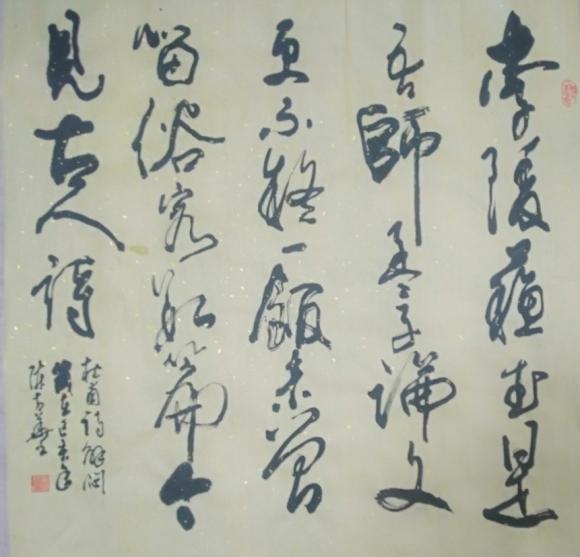 李陵蘇武是
吾師孟子論文
更不疑一飯未曾
留俗客数篇今
見古人詩
杜甫詩解悶